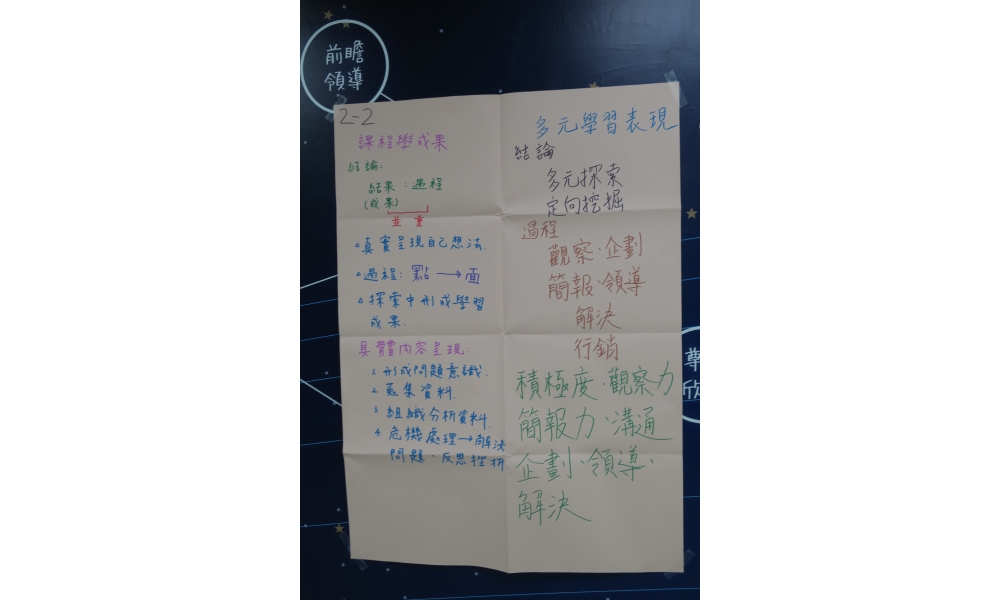 前瞻
領導
2-2
課程學成果
結論:
結果:過程
(成果)
並重
△真實呈現自己想法.
△過程:點→面
△探索中形成學習
成果.
具體內容呈現:
1.形成問題意識.
2.蒐集資料.
3.組織分析資料.
4.危機處理→解決
問題.反思挫折
多元學習表現
結論
多元探索
定向挖掘
過程
觀察·企劃
簡報·領導
解決
行銷
積極度·觀察力
簡報力·溝通
企劃·領導·
解決
尊
欣